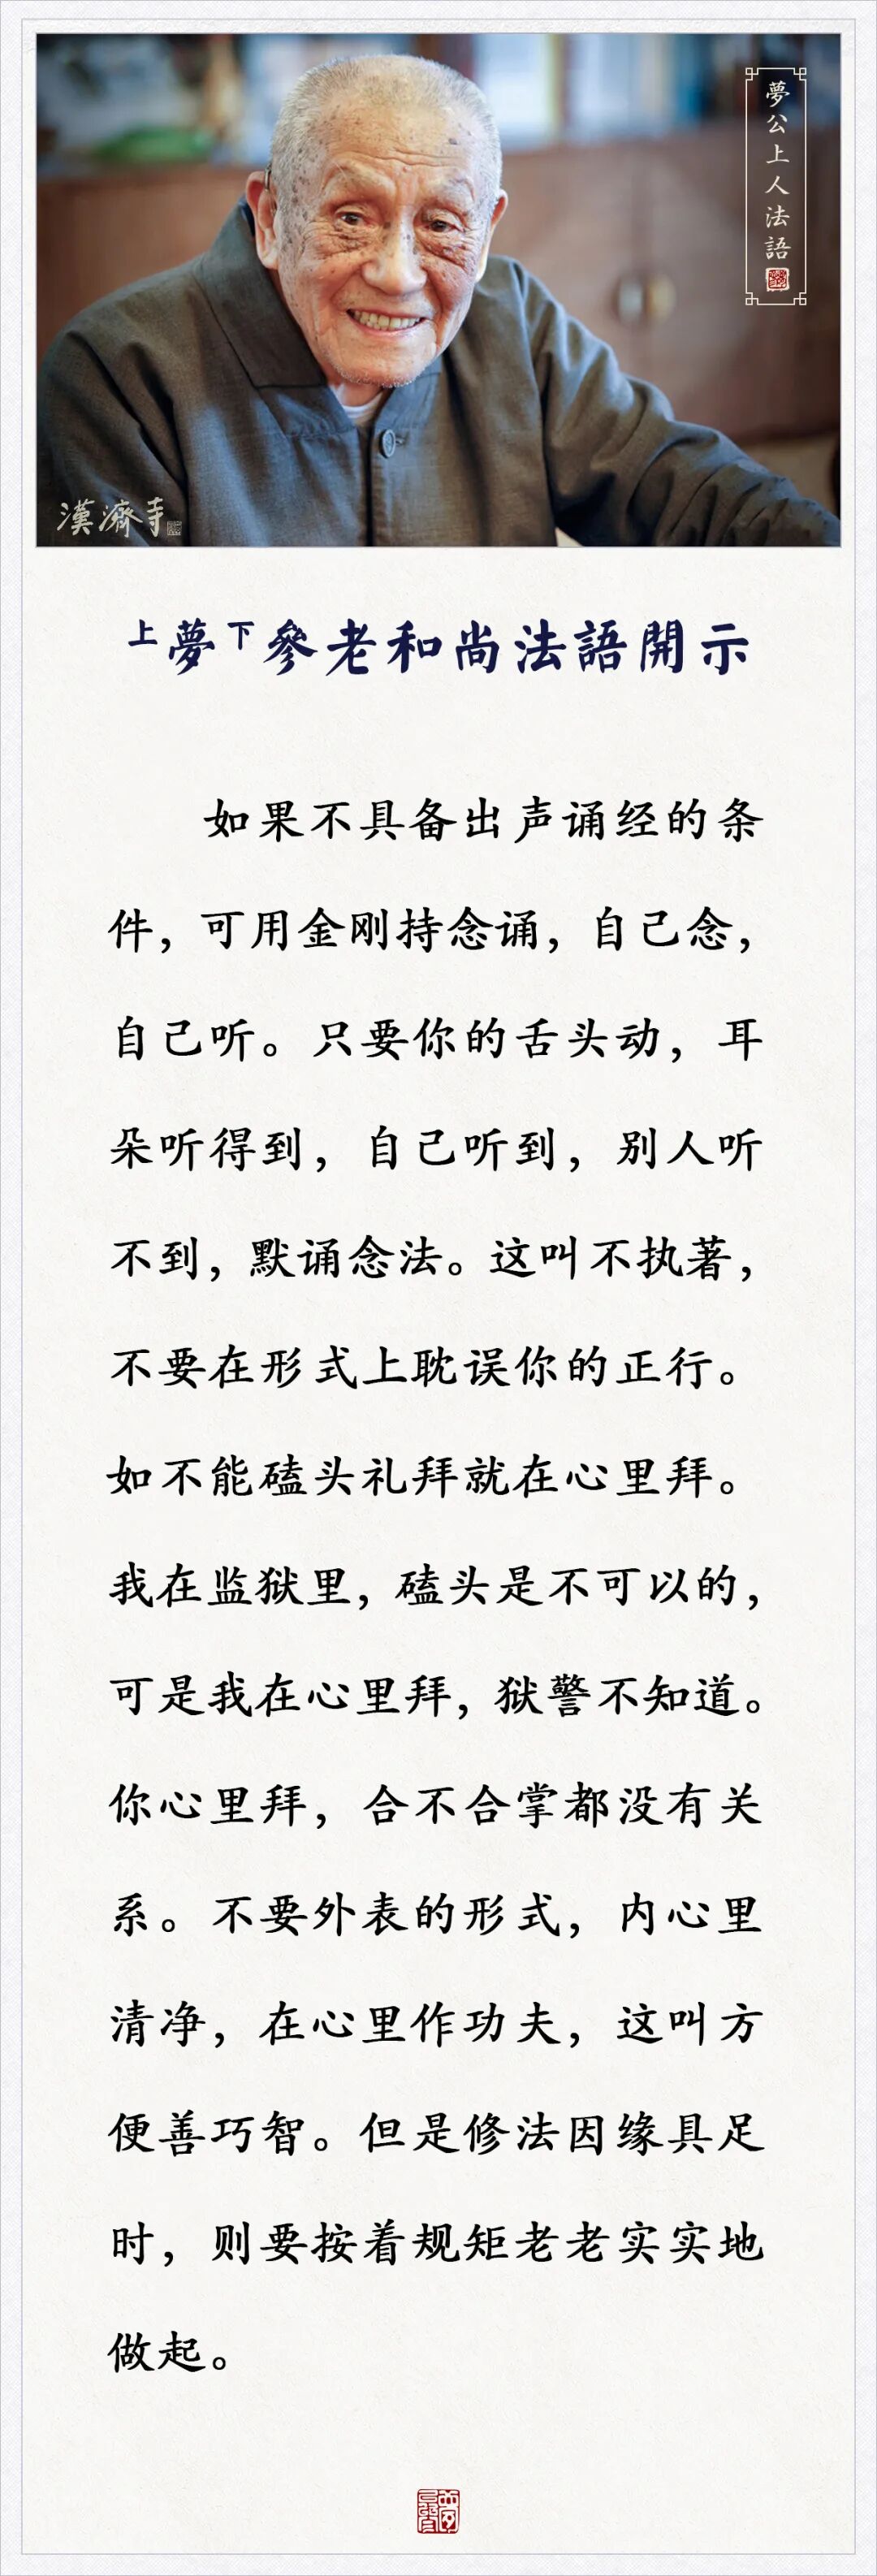 夢公上人法語
漢濟寺
上夢下參老和尚法語開示
如果不具备出声诵经的条
件，可用金刚持念诵，自己念，
自己听。只要你的舌头动，耳
朵听得到，自己听到，别人听
不到，默诵念法。这叫不执著，
不要在形式上耽误你的正行。
如不能磕头礼拜就在心里拜。
我在监狱里，磕头是不可以的，
可是我在心里拜，狱警不知道。
你心里拜，合不合掌都没有关
系。不要外表的形式，内心里
清净，在心里作功夫，这叫方
便善巧智。但是修法因缘具足
时，则要按着规矩老老实实地
做起。